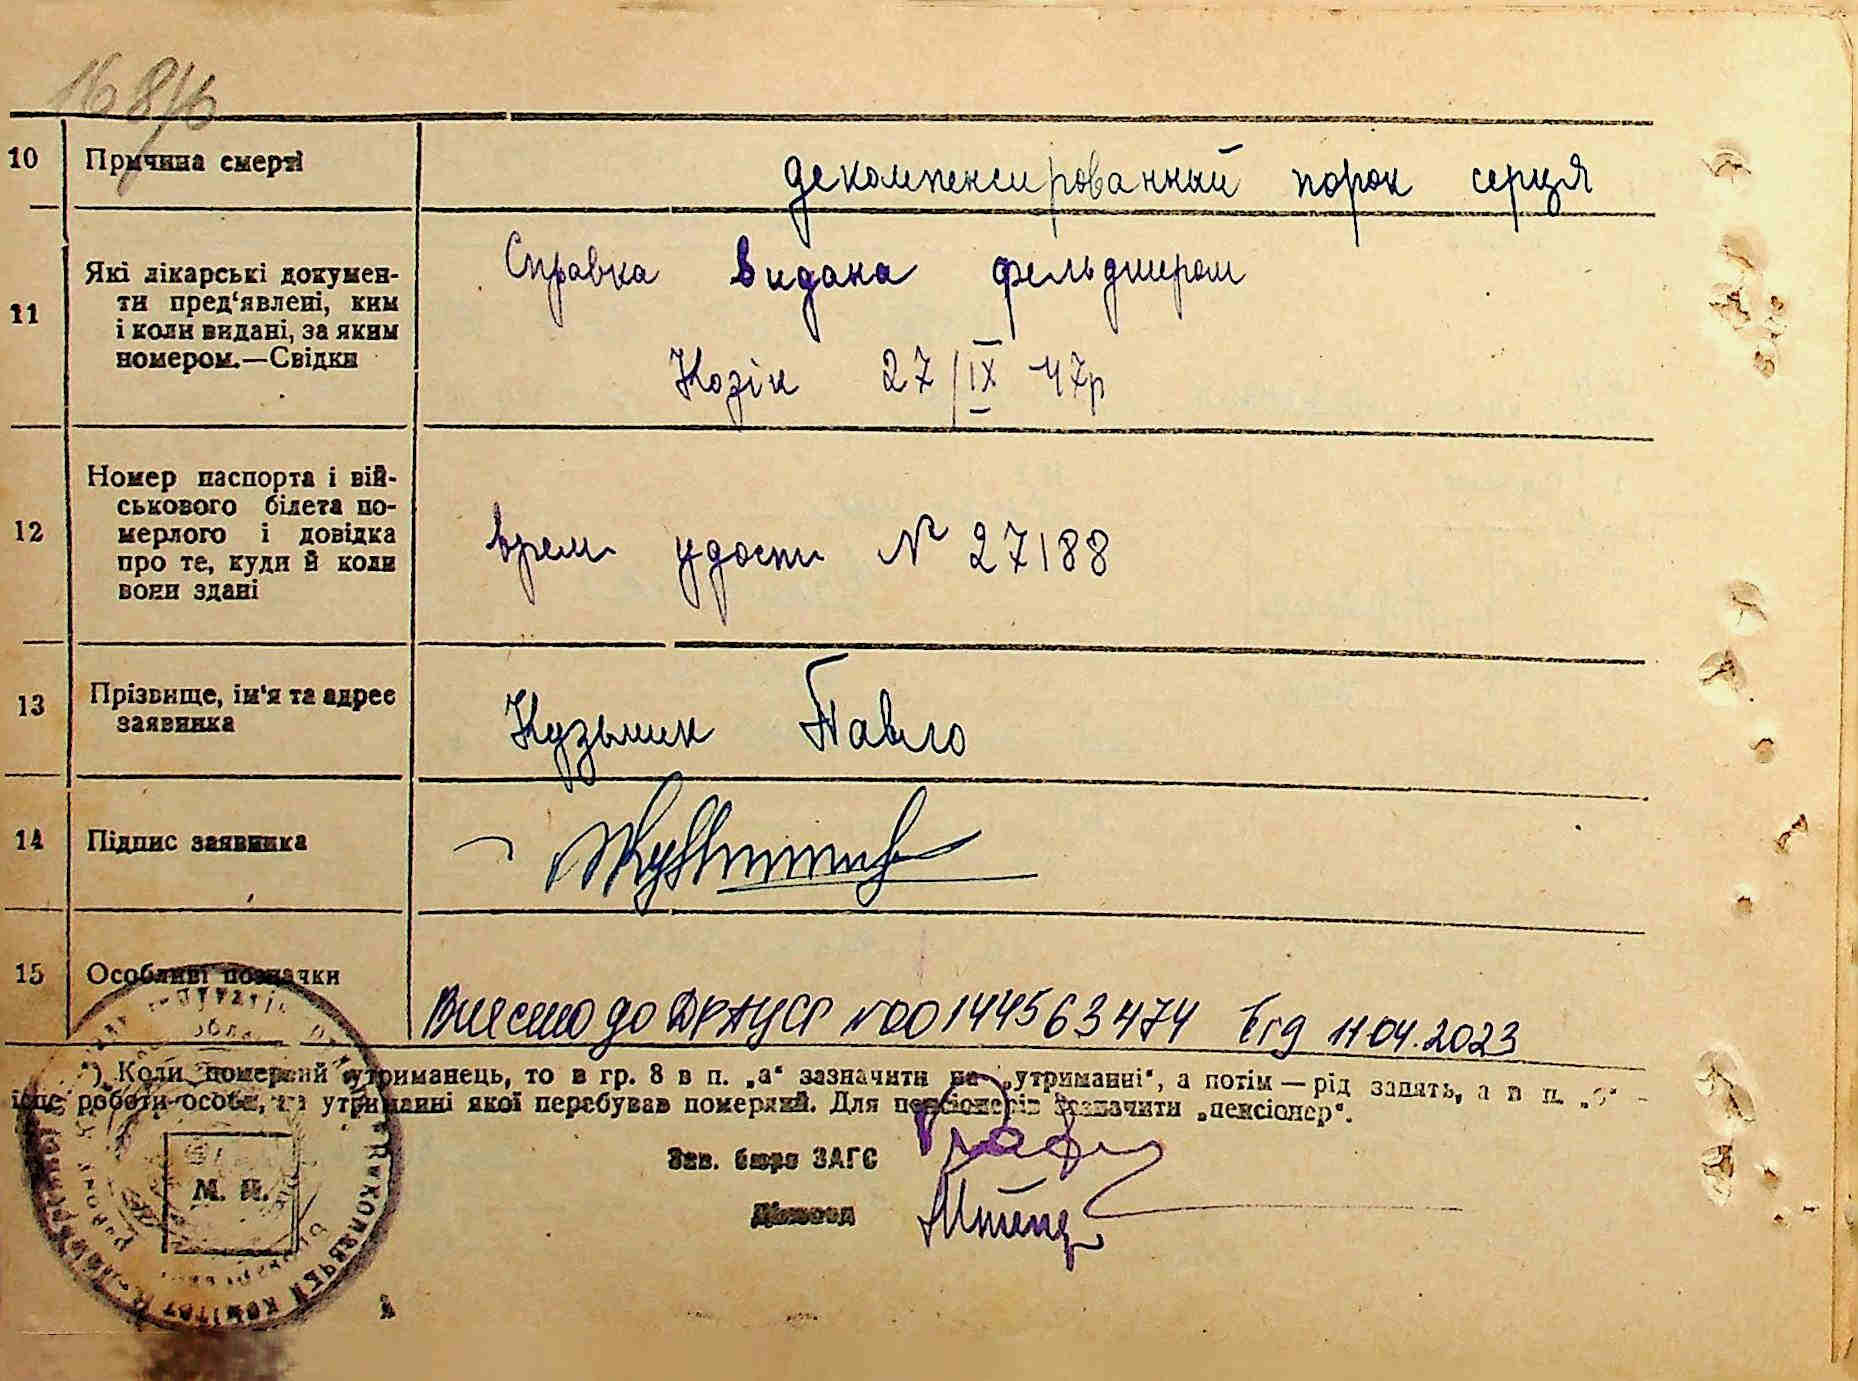 10 Причина смерті декомпенсированный порок серця
11 Які лікарські докумен-
ти пред‘явлені, ким
і коли видані, за яким
номером.—Свідки
Справка видана фельдшером
Козік 27/IX 47р
12 Номер паспорта і вій-
ськового білета по-
мерлого і довідка
про те, куди й коли
вони здані
врем удост № 27188
13 Прізвище, ім‘я та адрес
заявника
Кузьмик Павло
14 Підпис заявника
15 Особливі позначки
Внесено до ДРАЦСГ №00144563474 11.04.2023
*) Коли померлий утриманець, то в гр. 8 в п. „а“ зазначити на „утриманні“, а потім — рід занять, а в п. „б“ -
місце роботи особи, на утриманні якої перебував померлий. Для пенсіонерів зазначити „пенсіонер“.
Зав. бюро ЗАГС
Діловод
М. П.